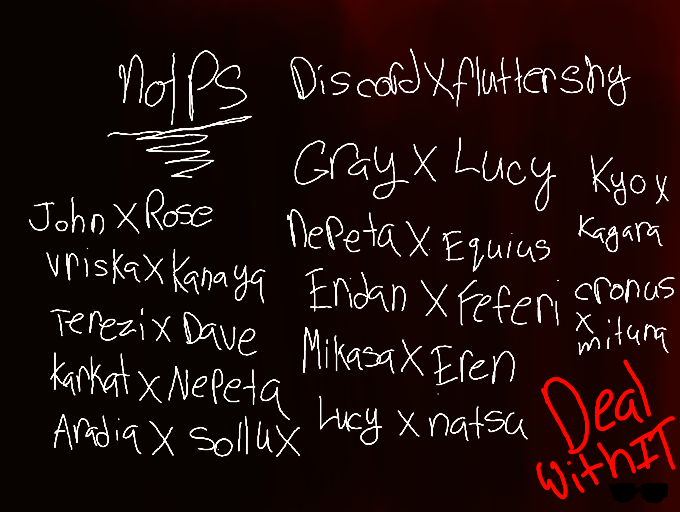 NOTPS
John X Rose
Vriska X Kanaya
Terezi X Dave
Karkat X Nepeta
Aradia X Sollux
Discord X fluttershy
Gray X Lucy
Nepeta X Equius
Eridan X Feferi
Mikasa X Eren
Lucy X natsu
Kyo X
Kagara
cronus
X
mituna
Deal
with IT